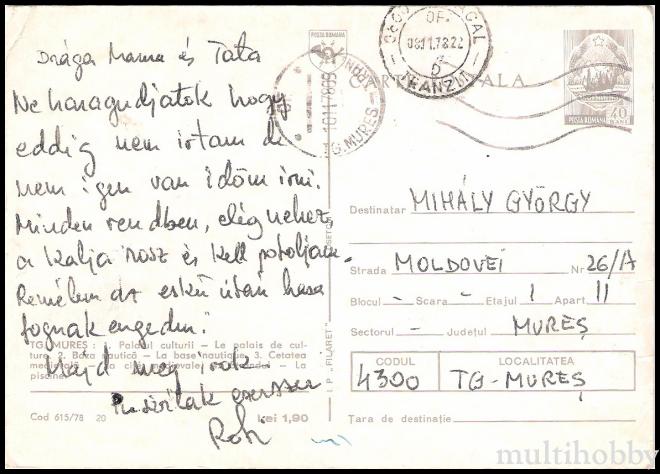 Drága Mama és Tata
Ne haragudjatok hogy
eddig nem irtam de
nem igen van időm irni.
Minden rendben, elég nehéz,
a kalja rosz és kell potoljam.
Remélem az eskü után haza
fognak engedni.
Majd meg irok.
Puszitlak ezerszer
Robi
TG. MUREȘ: 1. Palatul culturii — Le palais de cul-
ture. 2. Baza nautică — La base nautique. 3. Cetatea
medievală — La
piscine
Cod 615/78 20
Lei 1,90
I. P. „FILARET"
POSTA ROMANA
CARTE POȘTALĂ
OF.
08.11.78.22
TRANZIT
18.11.78
TG. MUREȘ
POSTA ROMANA
40
BANI
Destinatar MIHÁLY GYÖRGY
Strada MOLDOVEI Nr 26/A
Blocul - Scara - Etajul I Apart 11
Sectorul - Județul MUREȘ
CODUL LOCALITATEA
4300 TG-MUREȘ
Țara de destinație
multihobby